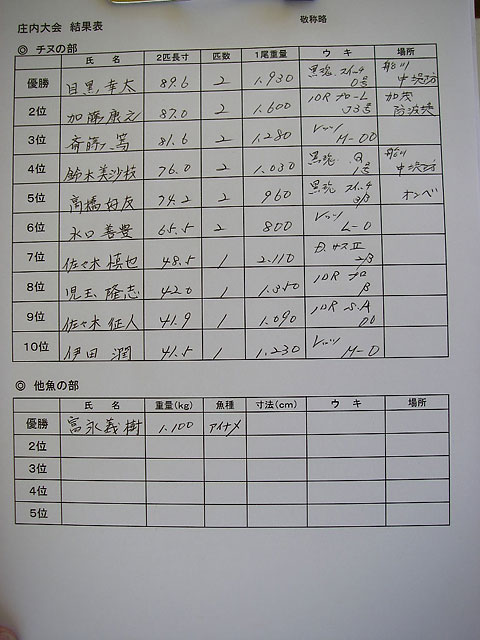 敬称略
庄内大会 結果表
◎ チヌの部
氏 名 2匹長寸 匹数 1尾重量 ウキ 場所
優勝 目黒幸太 89.6 2 1.930 黒魂 0号 船川
2位 加藤康之 87.0 2 1.600 IDR 加茂 防波堤
3位 斎藤 篤 81.6 2 1.280 M-00
4位 鈴木美沙枝 76.0 2 1.030 黒魂 Q 1号
5位 高橋好友 74.2 2 960 黒魂 オンベ
6位 水口善豊 65.5 2 800 L-0
7位 佐々木慎也 48.5 1 2.110
8位 児玉隆志 42.0 1 1.350 IDR プロ β
9位 佐々木征人 41.9 1 1.090 IDR S.A 00
10位 伊田 潤 41.5 1 1.230 M-0
◎ 他魚の部
氏 名 重量(kg) 魚種 寸法(cm) ウキ 場所
優勝 富永義樹 1.100 アイナメ
2位
3位
4位
5位